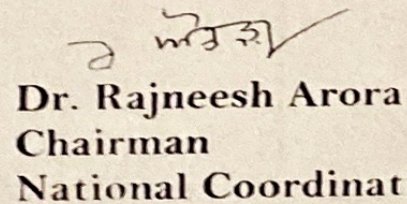 Dr. Rajneesh Arora
Chairman
National Coordinat